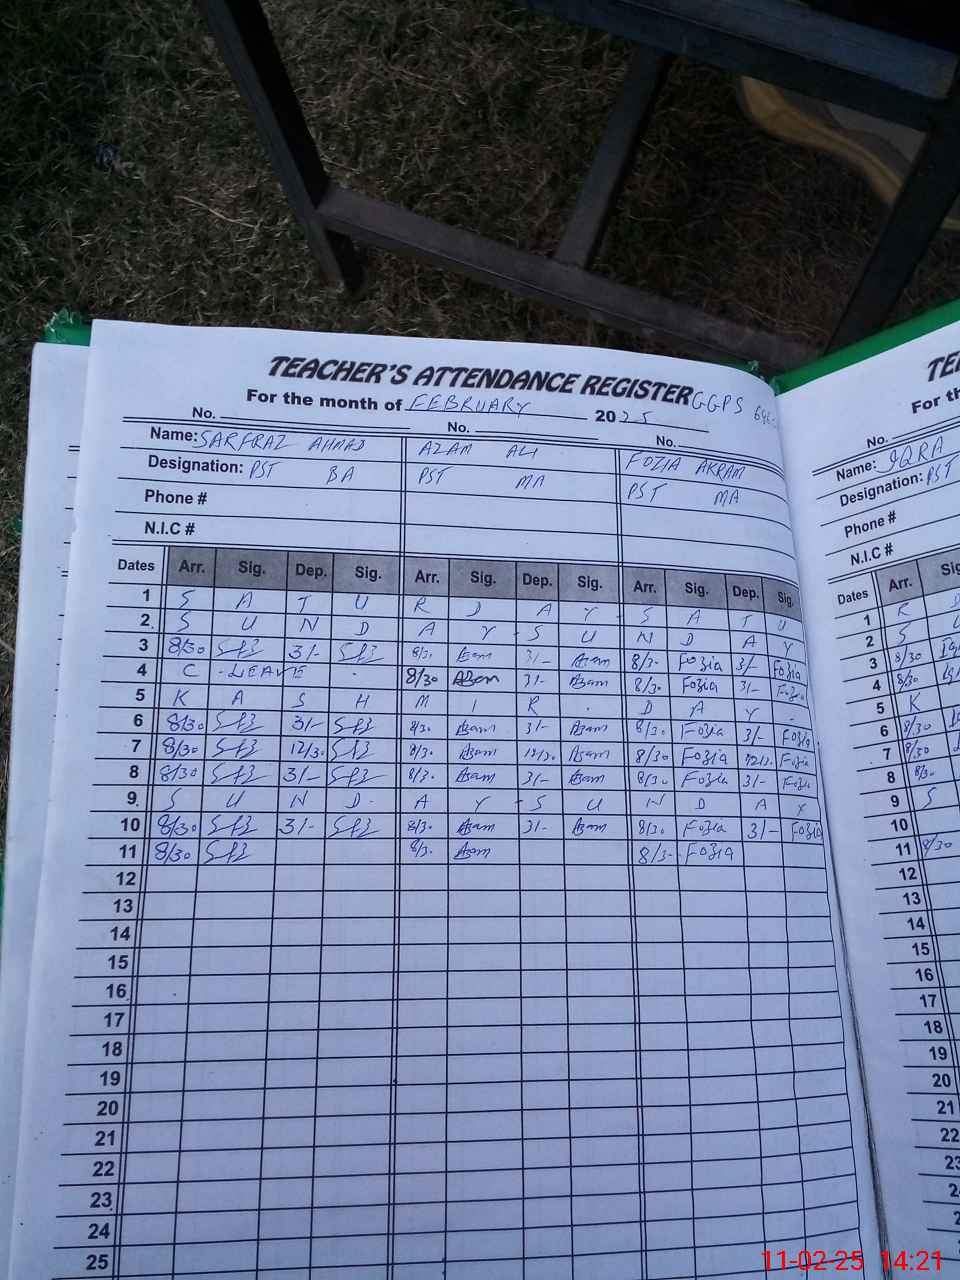 TEACHER'S ATTENDANCE REGISTER GGPS
For the month of FEBRUARY 2025
No. No. No.
Name: SARFRAZ AHMAD AZAM ALI FOZIA AKRAM
Designation: PST BA PST MA PST MA
Phone #
N.I.C #
Dates Arr. Sig. Dep. Sig. Arr. Sig. Dep. Sig. Arr. Sig. Dep. Sig.
1 S A T U R D A Y - S A T U
2 S U N D A Y - S U N D A Y
3 8/30 3/- 8/30 Azam 3/- Azam 8/30 Fozia 3/- Fozia
4 C - LEAVE - 8/30 Azam 3/- Azam 8/30 Fozia 3/- Fozia
5 K A S H M I R . D A Y -
6 8/30 3/- 8/30 Azam 3/- Azam 8/30 Fozia 3/- Fozia
7 8/30 12/30 8/30 Azam 12/30 Azam 8/30 Fozia 12/30 Fozia
8 8/30 3/- 8/30 Azam 3/- Azam 8/30 Fozia 3/- Fozia
9 S U N D A Y - S U N D A Y
10 8/30 3/- 8/30 Azam 3/- Azam 8/30 Fozia 3/- Fozia
11 8/30 8/30 Azam 8/30 Fozia
12
13
14
15
16
17
18
19
20
21
22
23
24
25
For th
No.
Name: IQRA
Designation: PST
Phone #
N.I.C #
Dates Arr.
1 R D
2 S U
3 8/30
4 8/30
5 K
6 8/30
7 8/30
8 8/30
9 S
10
11 8/30
12
13
14
15
16
17
18
19
20
21
22
23
11-02-25 14:21